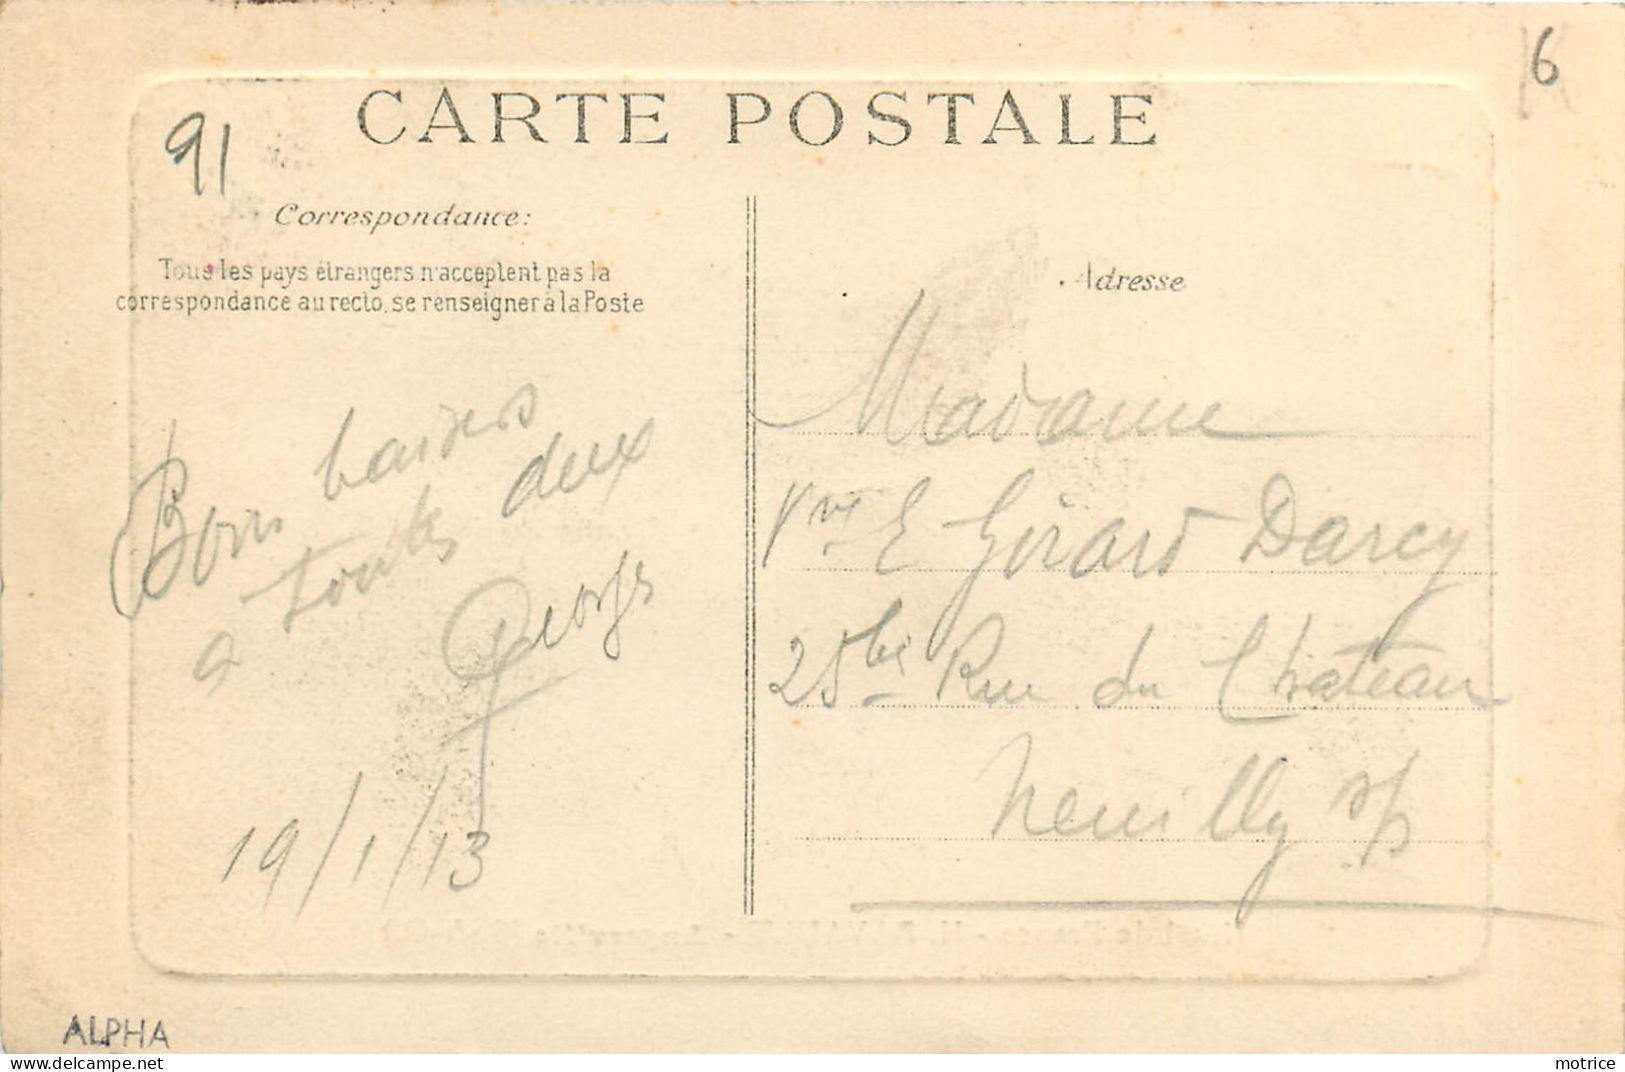 6
CARTE POSTALE
91
Correspondance:
Tous les pays étrangers n'acceptent pas la
correspondance au recto, se renseigner à la Poste
Bons baisers
a toutes deux
Georges
19/1/13
Adresse
Madame
Vve E Girard Darcy
25 bis Rue du Chateau
Neuilly s/s
ALPHA
motrice